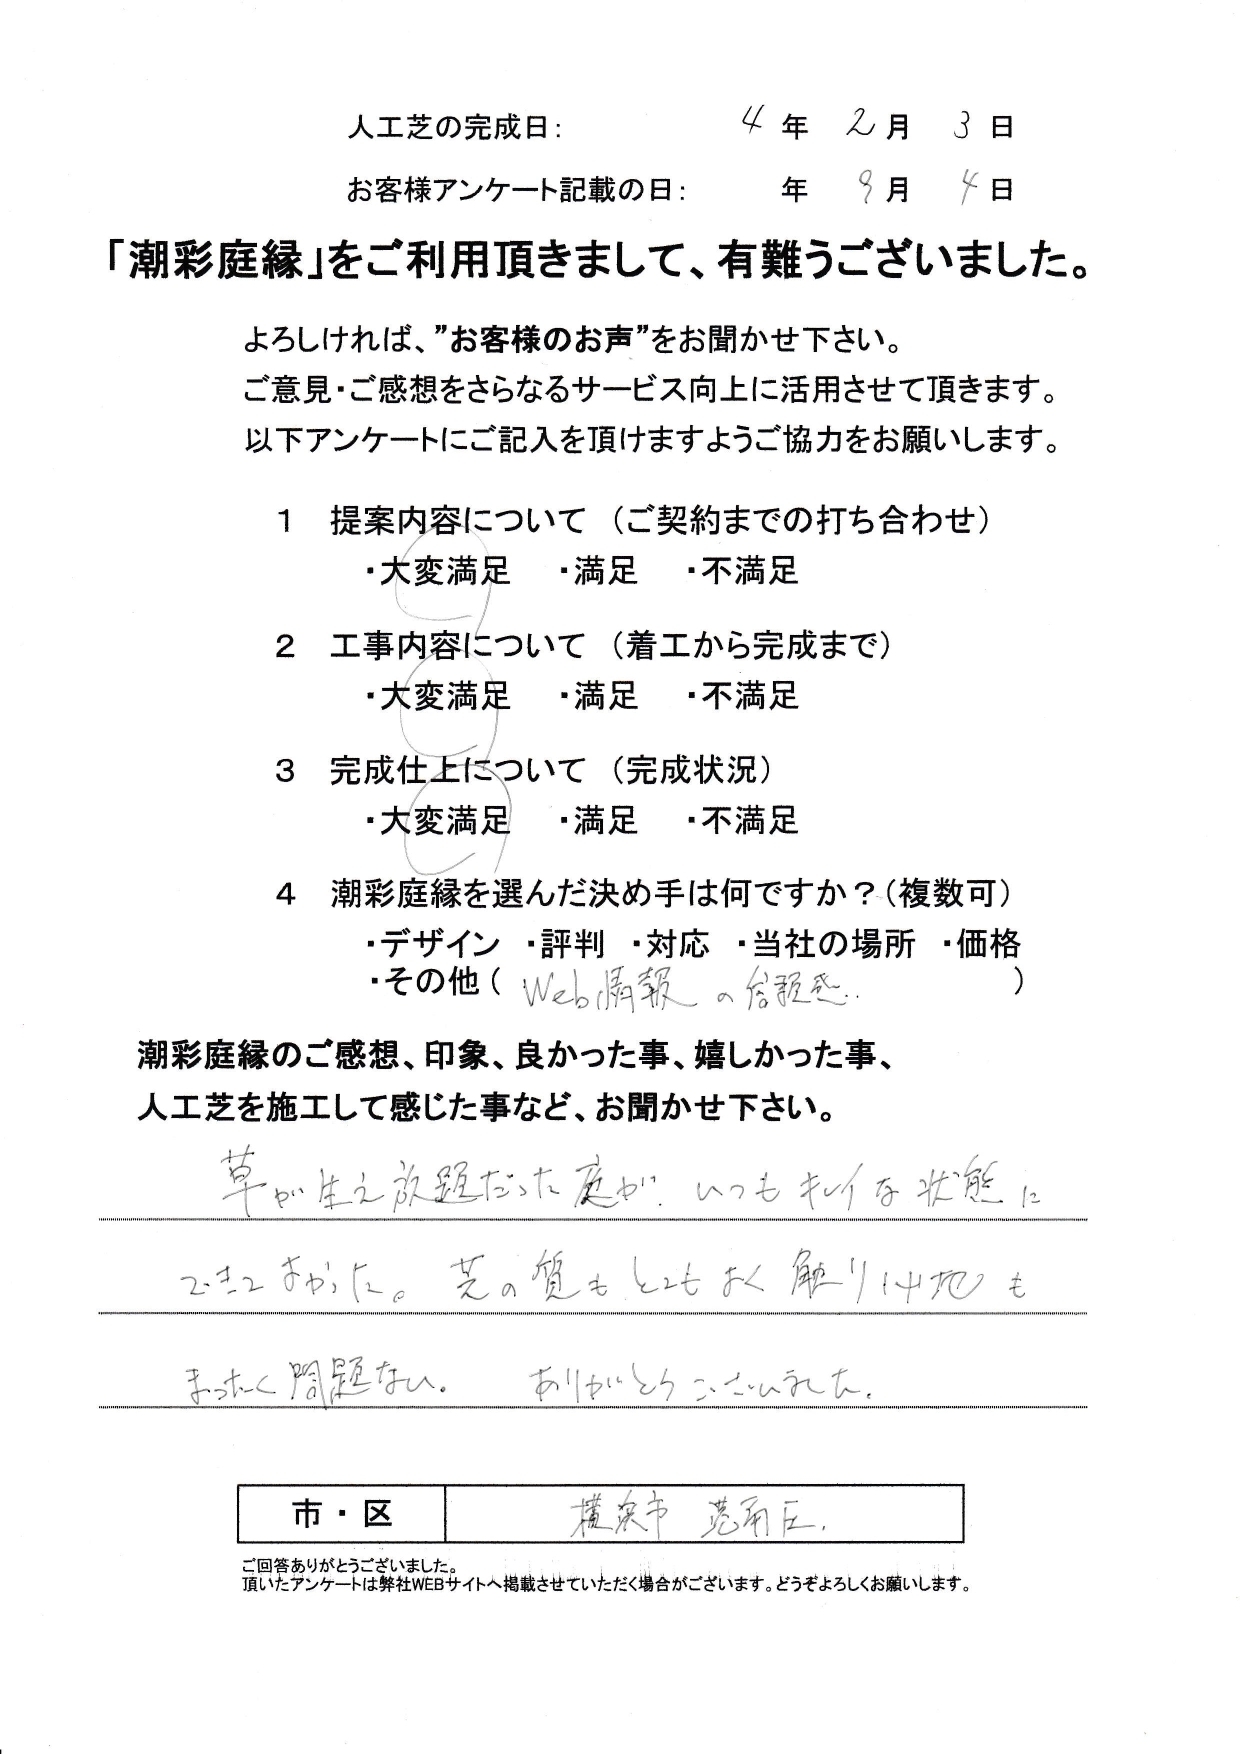 人工芝の完成日: 4年 2月 3日
お客様アンケート記載の日: 年 9月 4日
「潮彩庭縁」をご利用頂きまして、有難うございました。
よろしければ、”お客様のお声”をお聞かせ下さい。
ご意見・ご感想をさらなるサービス向上に活用させて頂きます。
以下アンケートにご記入を頂けますようご協力をお願いします。
1 提案内容について (ご契約までの打ち合わせ)
・大変満足 ・満足 ・不満足
2 工事内容について (着工から完成まで)
・大変満足 ・満足 ・不満足
3 完成仕上について (完成状況)
・大変満足 ・満足 ・不満足
4 潮彩庭縁を選んだ決め手は何ですか?(複数可)
・デザイン ・評判 ・対応 ・当社の場所 ・価格
・その他( Web情報の信頼感.. )
潮彩庭縁のご感想、印象、良かった事、嬉しかった事、
人工芝を施工して感じた事など、お聞かせ下さい。
草が生え放題だった庭が、いつもキレイな状態に
できてよかった。 芝の質もとてもよく触り心地も
まったく問題ない。 ありがとうございました。
市・区 横浜市 港南区.
ご回答ありがとうございました。
頂いたアンケートは弊社WEBサイトへ掲載させていただく場合がございます。どうぞよろしくお願いします。